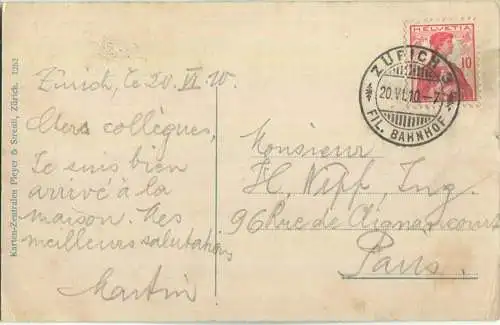 Karten-Zentralen Pleyer & Streuli, Zürich. 1263
Zürich, le 20. VI. 10.
Chers collègues,
Je suis bien
arrivé à la
maison. Mes
meilleurs salutations
Martin
HELVETIA
10
ZÜRICH
20.VI.10.-7
FIL. BAHNHOF.
Monsieur
H. Nipf, Ing.
96 Rue de Clignancourt
Paris.